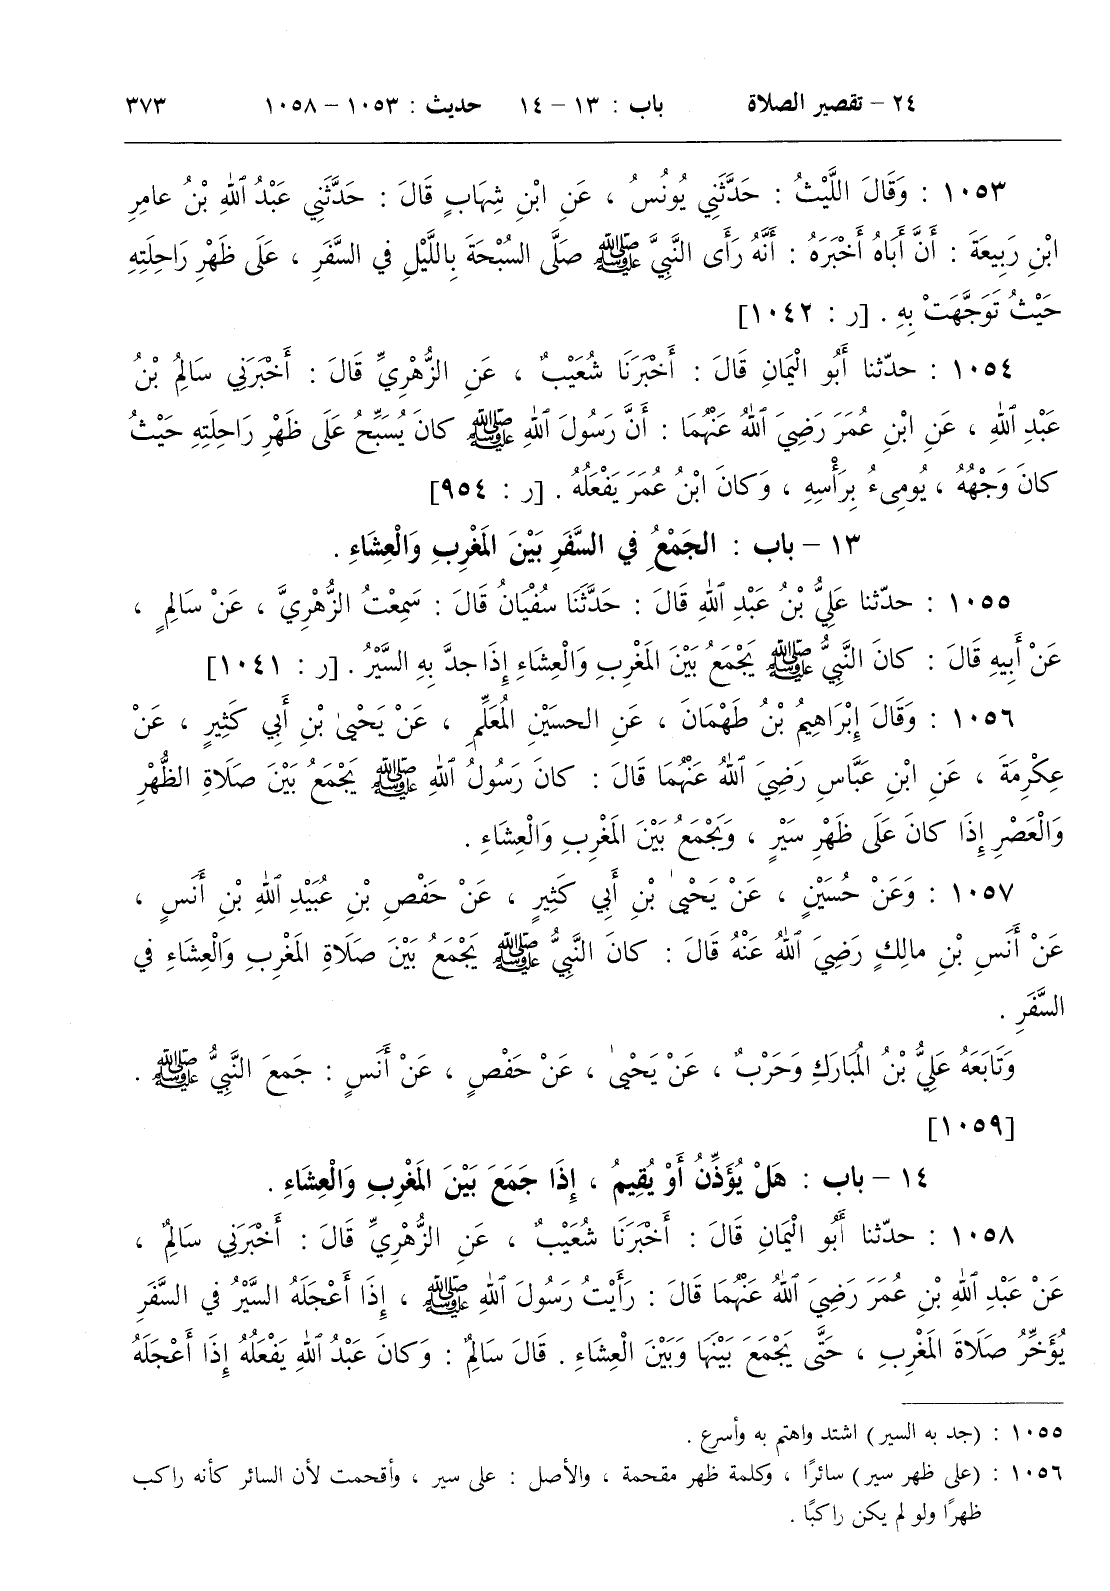 ٢٤ – تقصير الصلاة باب : ١٣ – ١٤ حديث : ١٠٥٣ – ١٠٥٨ ٣٧٣
١٠٥٣ : وَقَالَ اللَّيْثُ : حَدَّثَنِي يُونُسُ ، عَنِ ابْنِ شِهَابٍ قَالَ : حَدَّثَنِي عَبْدُ ٱللهِ بْنُ عامِرِ
ابْنِ رَبِيعَةَ : أَنَّ أَبَاهُ أَخْبَرَهُ : أَنَّهُ رَأَى النَّبِيَّ ﷺ صَلَّى السُّبْحَةَ بِاللَّيْلِ في السَّفَرِ ، عَلَى ظَهْرِ رَاحِلَتِهِ
حَيْثُ تَوَجَّهَتْ بِهِ . [ر : ١٠٤٢]
١٠٥٤ : حدّثنا أَبُو الْيَمَانِ قَالَ : أَخْبَرَنَا شُعَيْبٌ ، عَنِ الزُّهْرِيِّ قَالَ : أَخْبَرَنِي سَالِمُ بْنُ
عَبْدِ ٱللهِ ، عَنِ ابْنِ عُمَرَ رَضِيَ ٱللهُ عَنْهُمَا : أَنَّ رَسُولَ ٱللهِ ﷺ كانَ يُسَبِّحُ عَلَى ظَهْرِ رَاحِلَتِهِ حَيْثُ
كانَ وَجْهُهُ ، يُومِىءُ بِرَأْسِهِ ، وَكانَ ابْنُ عُمَرَ يَفْعَلُهُ . [ر : ٩٥٤]
١٣ – باب : الجَمْعُ في السَّفَرِ بَيْنَ المَغْرِبِ وَالْعِشَاءِ .
١٠٥٥ : حدّثنا عَلِيُّ بْنُ عَبْدِ ٱللهِ قَالَ : حَدَّثَنَا سُفْيَانُ قَالَ : سَمِعْتُ الزُّهْرِيَّ ، عَنْ سَالِمٍ ،
عَنْ أَبِيهِ قَالَ : كانَ النَّبِيُّ ﷺ يَجْمَعُ بَيْنَ المَغْرِبِ وَالْعِشَاءِ إِذَا جدَّ بِهِ السَّيْرُ . [ر : ١٠٤١]
١٠٥٦ : وَقَالَ إِبْرَاهِيمُ بْنُ طَهْمَانَ ، عَنِ الحسَيْنِ المُعَلِّمِ ، عَنْ يَحْيىٰ بْنِ أَبِي كَثِيرٍ ، عَنْ
عِكْرِمَةَ ، عَنِ ابْنِ عَبَّاسٍ رَضِيَ ٱللهُ عَنْهُمَا قَالَ : كانَ رَسُولُ ٱللهِ ﷺ يَجْمَعُ بَيْنَ صَلَاةِ الظُّهْرِ
وَالْعَصْرِ إِذَا كانَ عَلَى ظَهْرِ سَيْرٍ ، وَيَجْمَعُ بَيْنَ المَغْرِبِ وَالْعِشَاءِ .
١٠٥٧ : وَعَنْ حُسَيْنٍ ، عَنْ يَحْيىٰ بْنِ أَبِي كَثِيرٍ ، عَنْ حَفْصِ بْنِ عُبَيْدِ ٱللهِ بْنِ أَنَسٍ ،
عَنْ أَنَسِ بْنِ مالِكٍ رَضِيَ ٱللهُ عَنْهُ قَالَ : كانَ النَّبِيُّ ﷺ يَجْمَعُ بَيْنَ صَلَاةِ المَغْرِبِ وَالْعِشَاءِ في
السَّفَرِ .
وَتَابَعَهُ عَلِيُّ بْنُ المُبَارَكِ وَحَرْبٌ ، عَنْ يَحْيىٰ ، عَنْ حَفْصٍ ، عَنْ أَنَسٍ : جَمعَ النَّبِيُّ ﷺ .
[١٠٥٩]
١٤ – باب : هَلْ يُؤَذِّنُ أَوْ يُقِيمُ ، إِذَا جَمَعَ بَيْنَ المَغْرِبِ وَالْعِشَاءِ .
١٠٥٨ : حدّثنا أَبُو الْيَمَانِ قَالَ : أَخْبَرَنَا شُعَيْبٌ ، عَنِ الزُّهْرِيِّ قَالَ : أَخْبَرَنِي سَالِمٌ ،
عَنْ عَبْدِ ٱللهِ بْنِ عُمَرَ رَضِيَ ٱللهُ عَنْهُمَا قَالَ : رَأَيْتُ رَسُولَ ٱللهِ ﷺ ، إِذَا أَعْجَلَهُ السَّيْرُ في السَّفَرِ
يُؤَخِّرُ صَلَاةَ المَغْرِبِ ، حَتَّى يَجْمَعَ بَيْنَهَا وَبَيْنَ الْعِشَاءِ . قَالَ سَالِمٌ : وَكانَ عَبْدُ ٱللهِ يَفْعَلُهُ إِذَا أَعْجَلَهُ
١٠٥٥ : (جد به السير) اشتد واهتم به وأسرع .
١٠٥٦ : (على ظهر سير) سائرًا ، وكلمة ظهر مقحمة ، والأصل : على سير ، وأقحمت لأن السائر كأنه راكب
ظهرًا ولو لم يكن راكبًا .